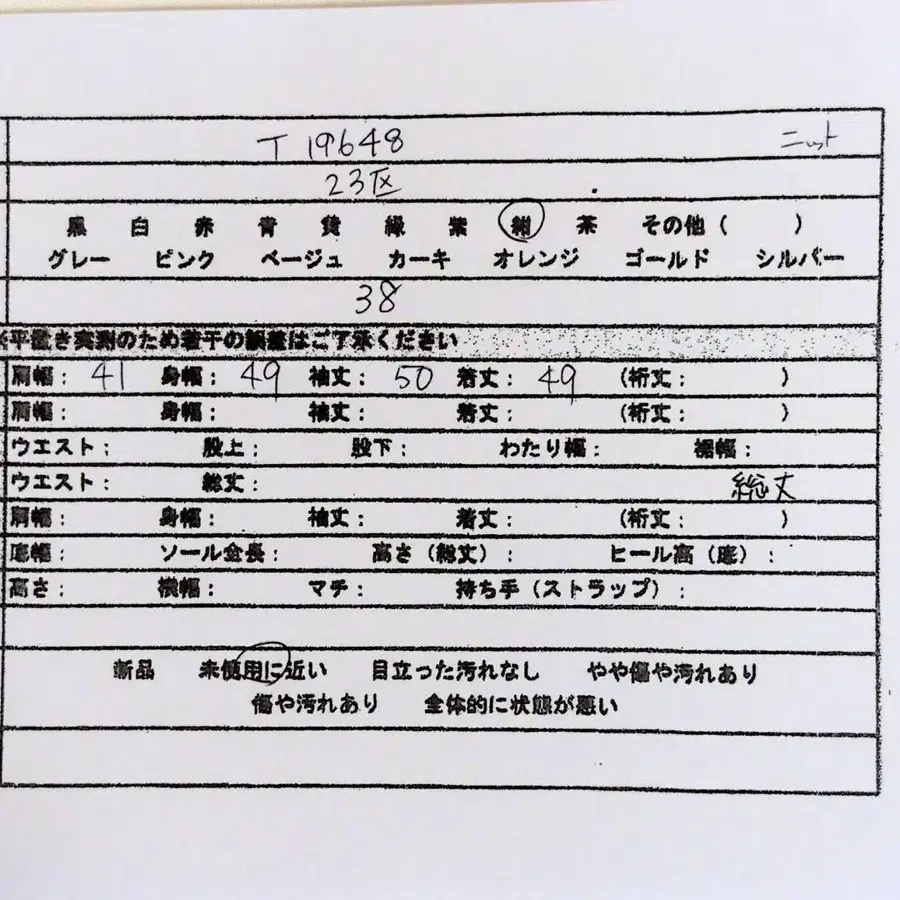 T 19648 ニット
23区
黒 白 赤 青 黄 緑 紫 紺 茶 その他 ( )
グレー ピンク ベージュ カーキ オレンジ ゴールド シルバー
38
※平置き実測のため若干の誤差はご了承ください
肩幅: 41 身幅: 49 袖丈: 50 着丈: 49 (裄丈: )
肩幅: 身幅: 袖丈: 着丈: (裄丈: )
ウエスト: 股上: 股下: わたり幅: 裾幅:
ウエスト: 総丈: 総丈
肩幅: 身幅: 袖丈: 着丈: (裄丈: )
底幅: ソール全長: 高さ(総丈): ヒール高(底):
高さ: 横幅: マチ: 持ち手(ストラップ):
新品 未使用に近い 目立った汚れなし やや傷や汚れあり
傷や汚れあり 全体的に状態が悪い